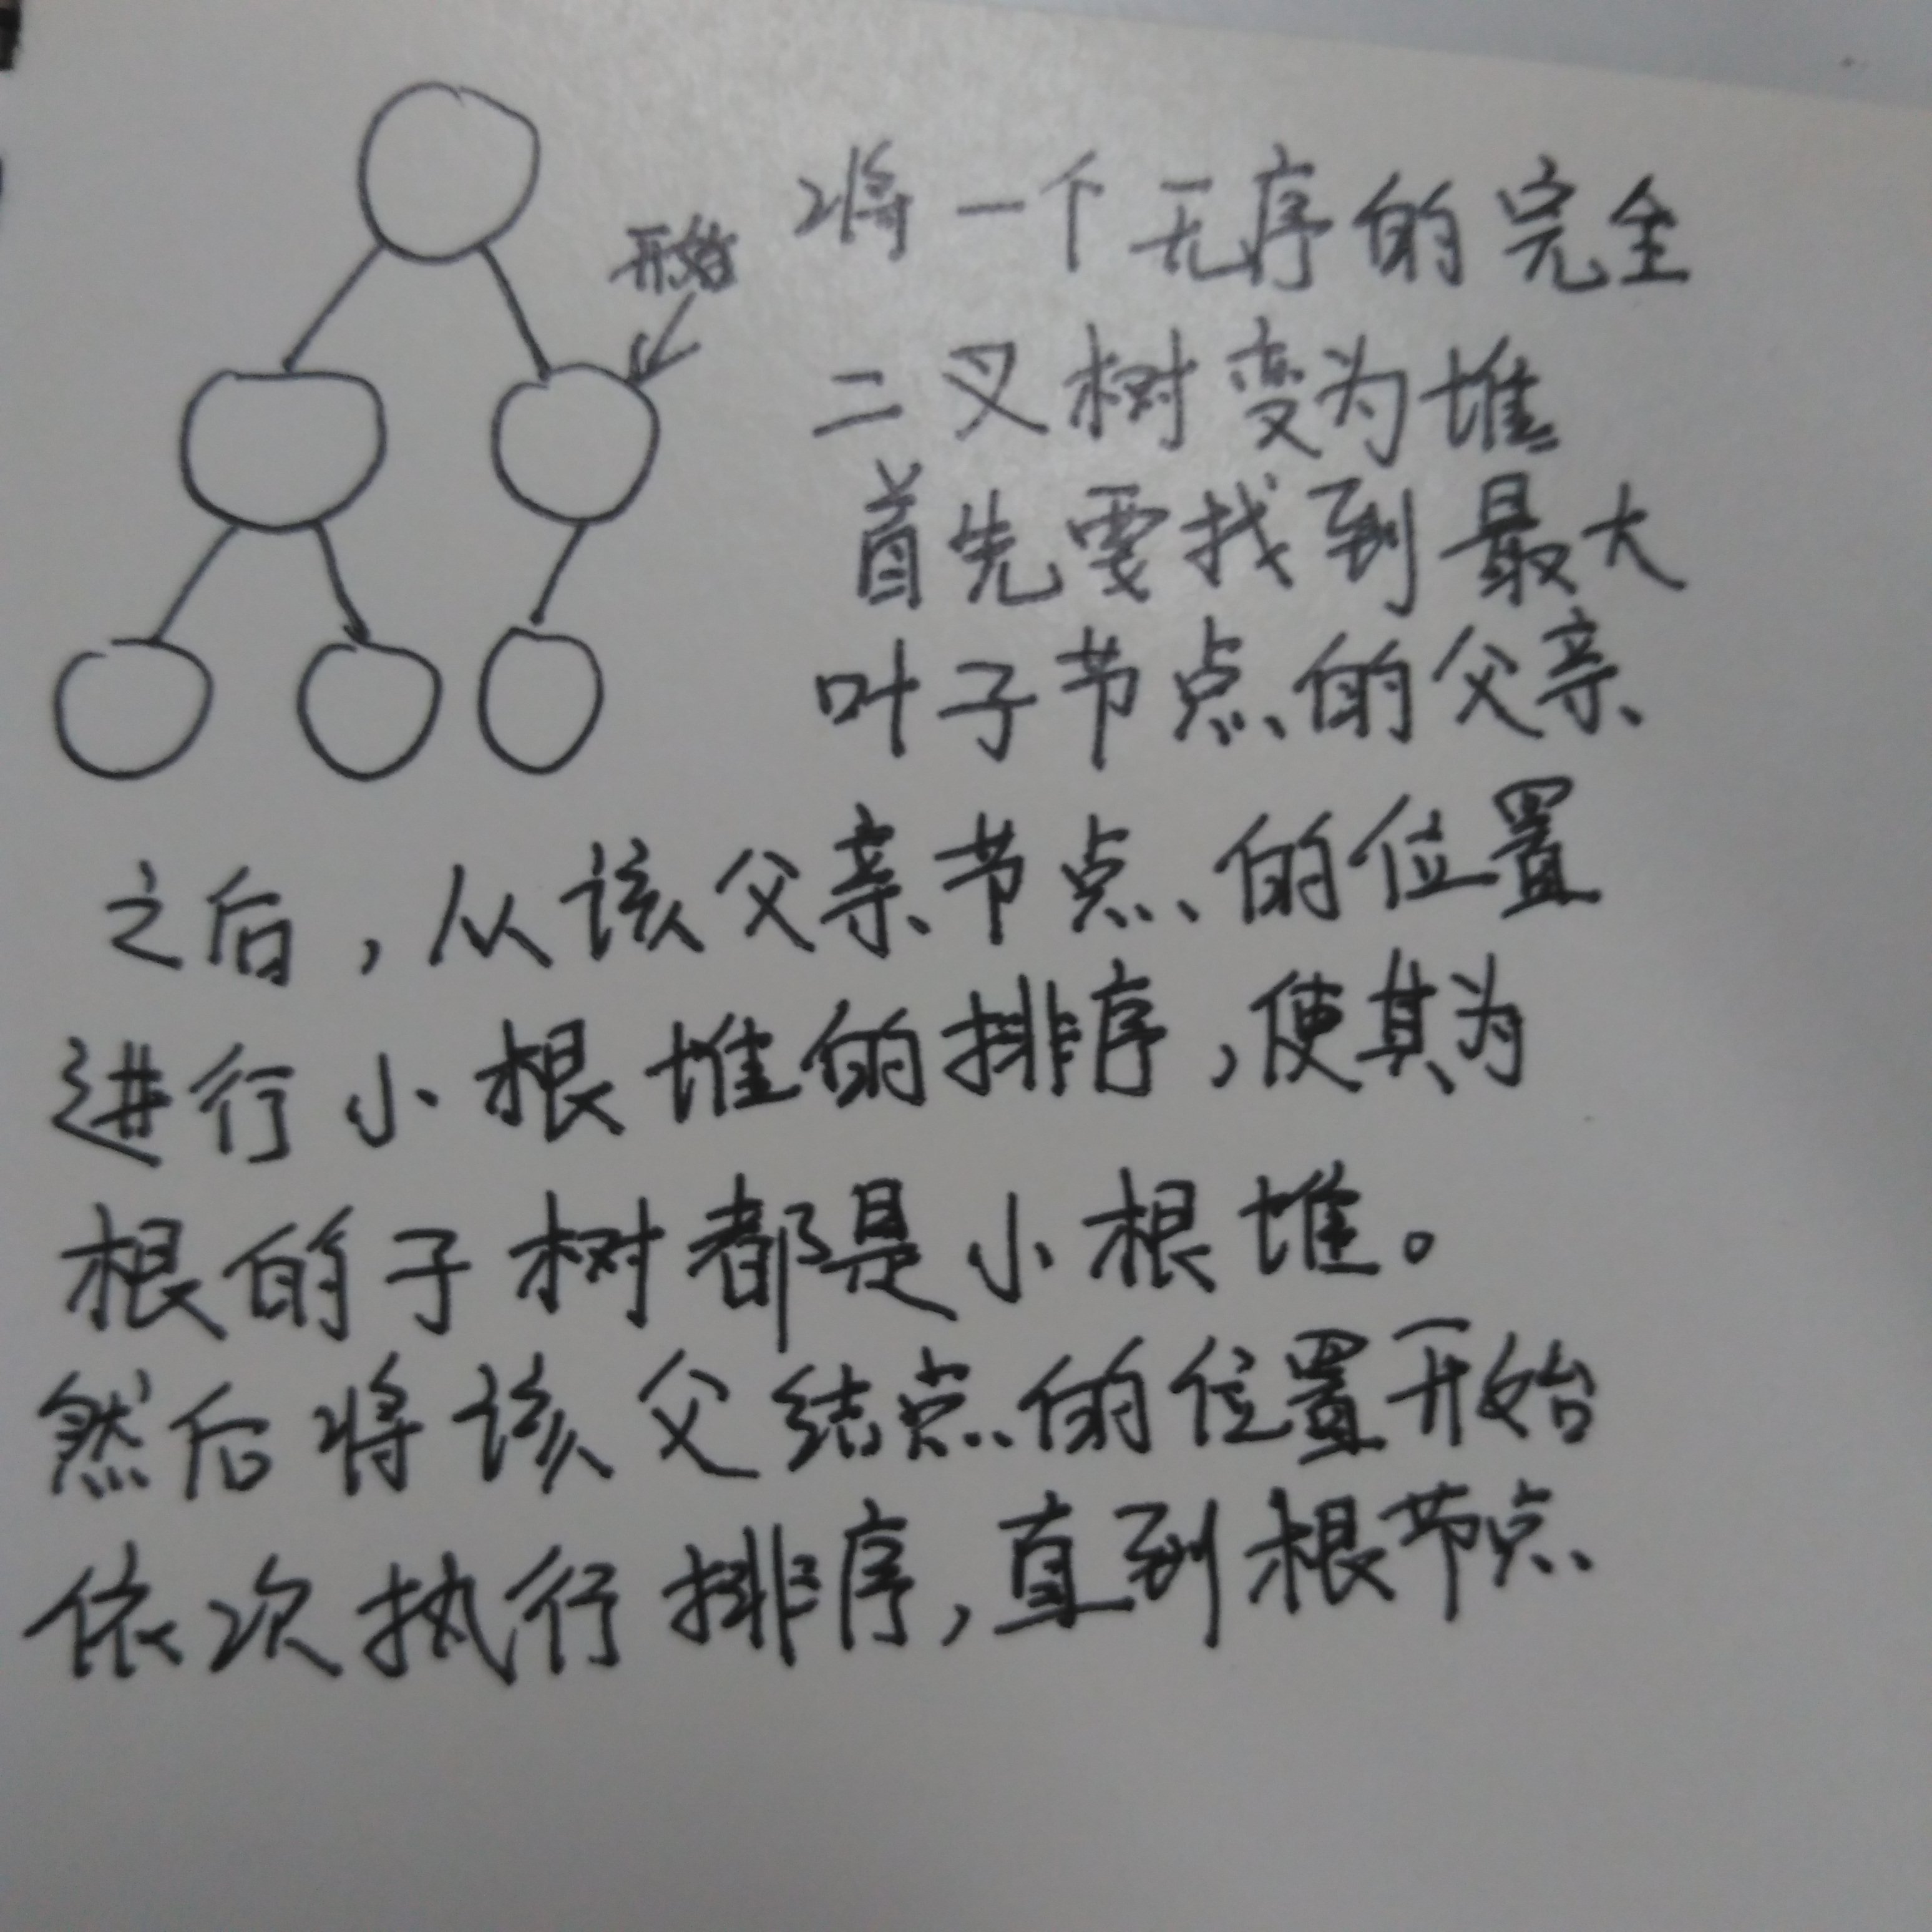 开始
将一个无序的完全
二叉树变为堆
首先要找到最大
叶子节点的父亲
之后,从该父亲节点的位置
进行小根堆的排序,使其为
根的子树都是小根堆。
然后将该父结点的位置开始
依次执行排序,直到根节点